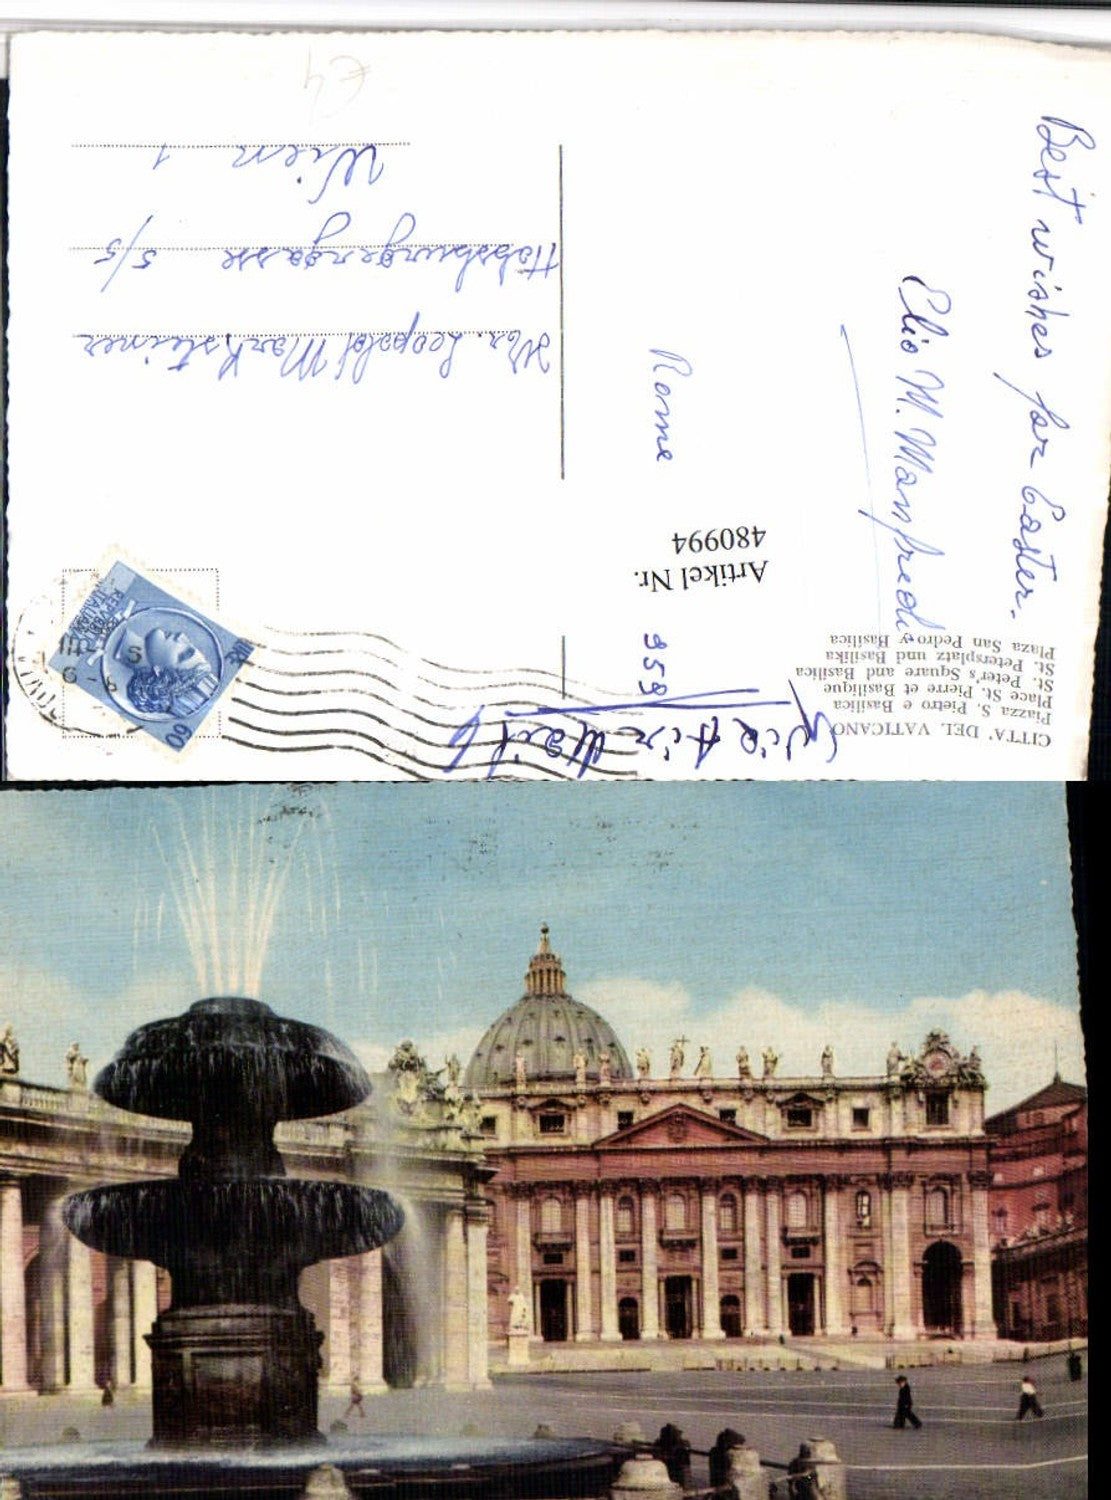 CITTA' DEL VATICANO
Piazza S. Pietro e Basilica
Place St. Pierre et Basilique
St. Peter's Square and Basilica
St. Petersplatz und Basilika
Plaza San Pedro y Basilica
Best wishes for Easter.
Elio M. Manfredi
Rome
959
Via Air Mail
Artikel Nr.
480994
Mr. Leopold Marksteiner
Habsburgergasse 5/5
Wien 1
€4
REPVBBLICA
ITALIANA
LIRE
60